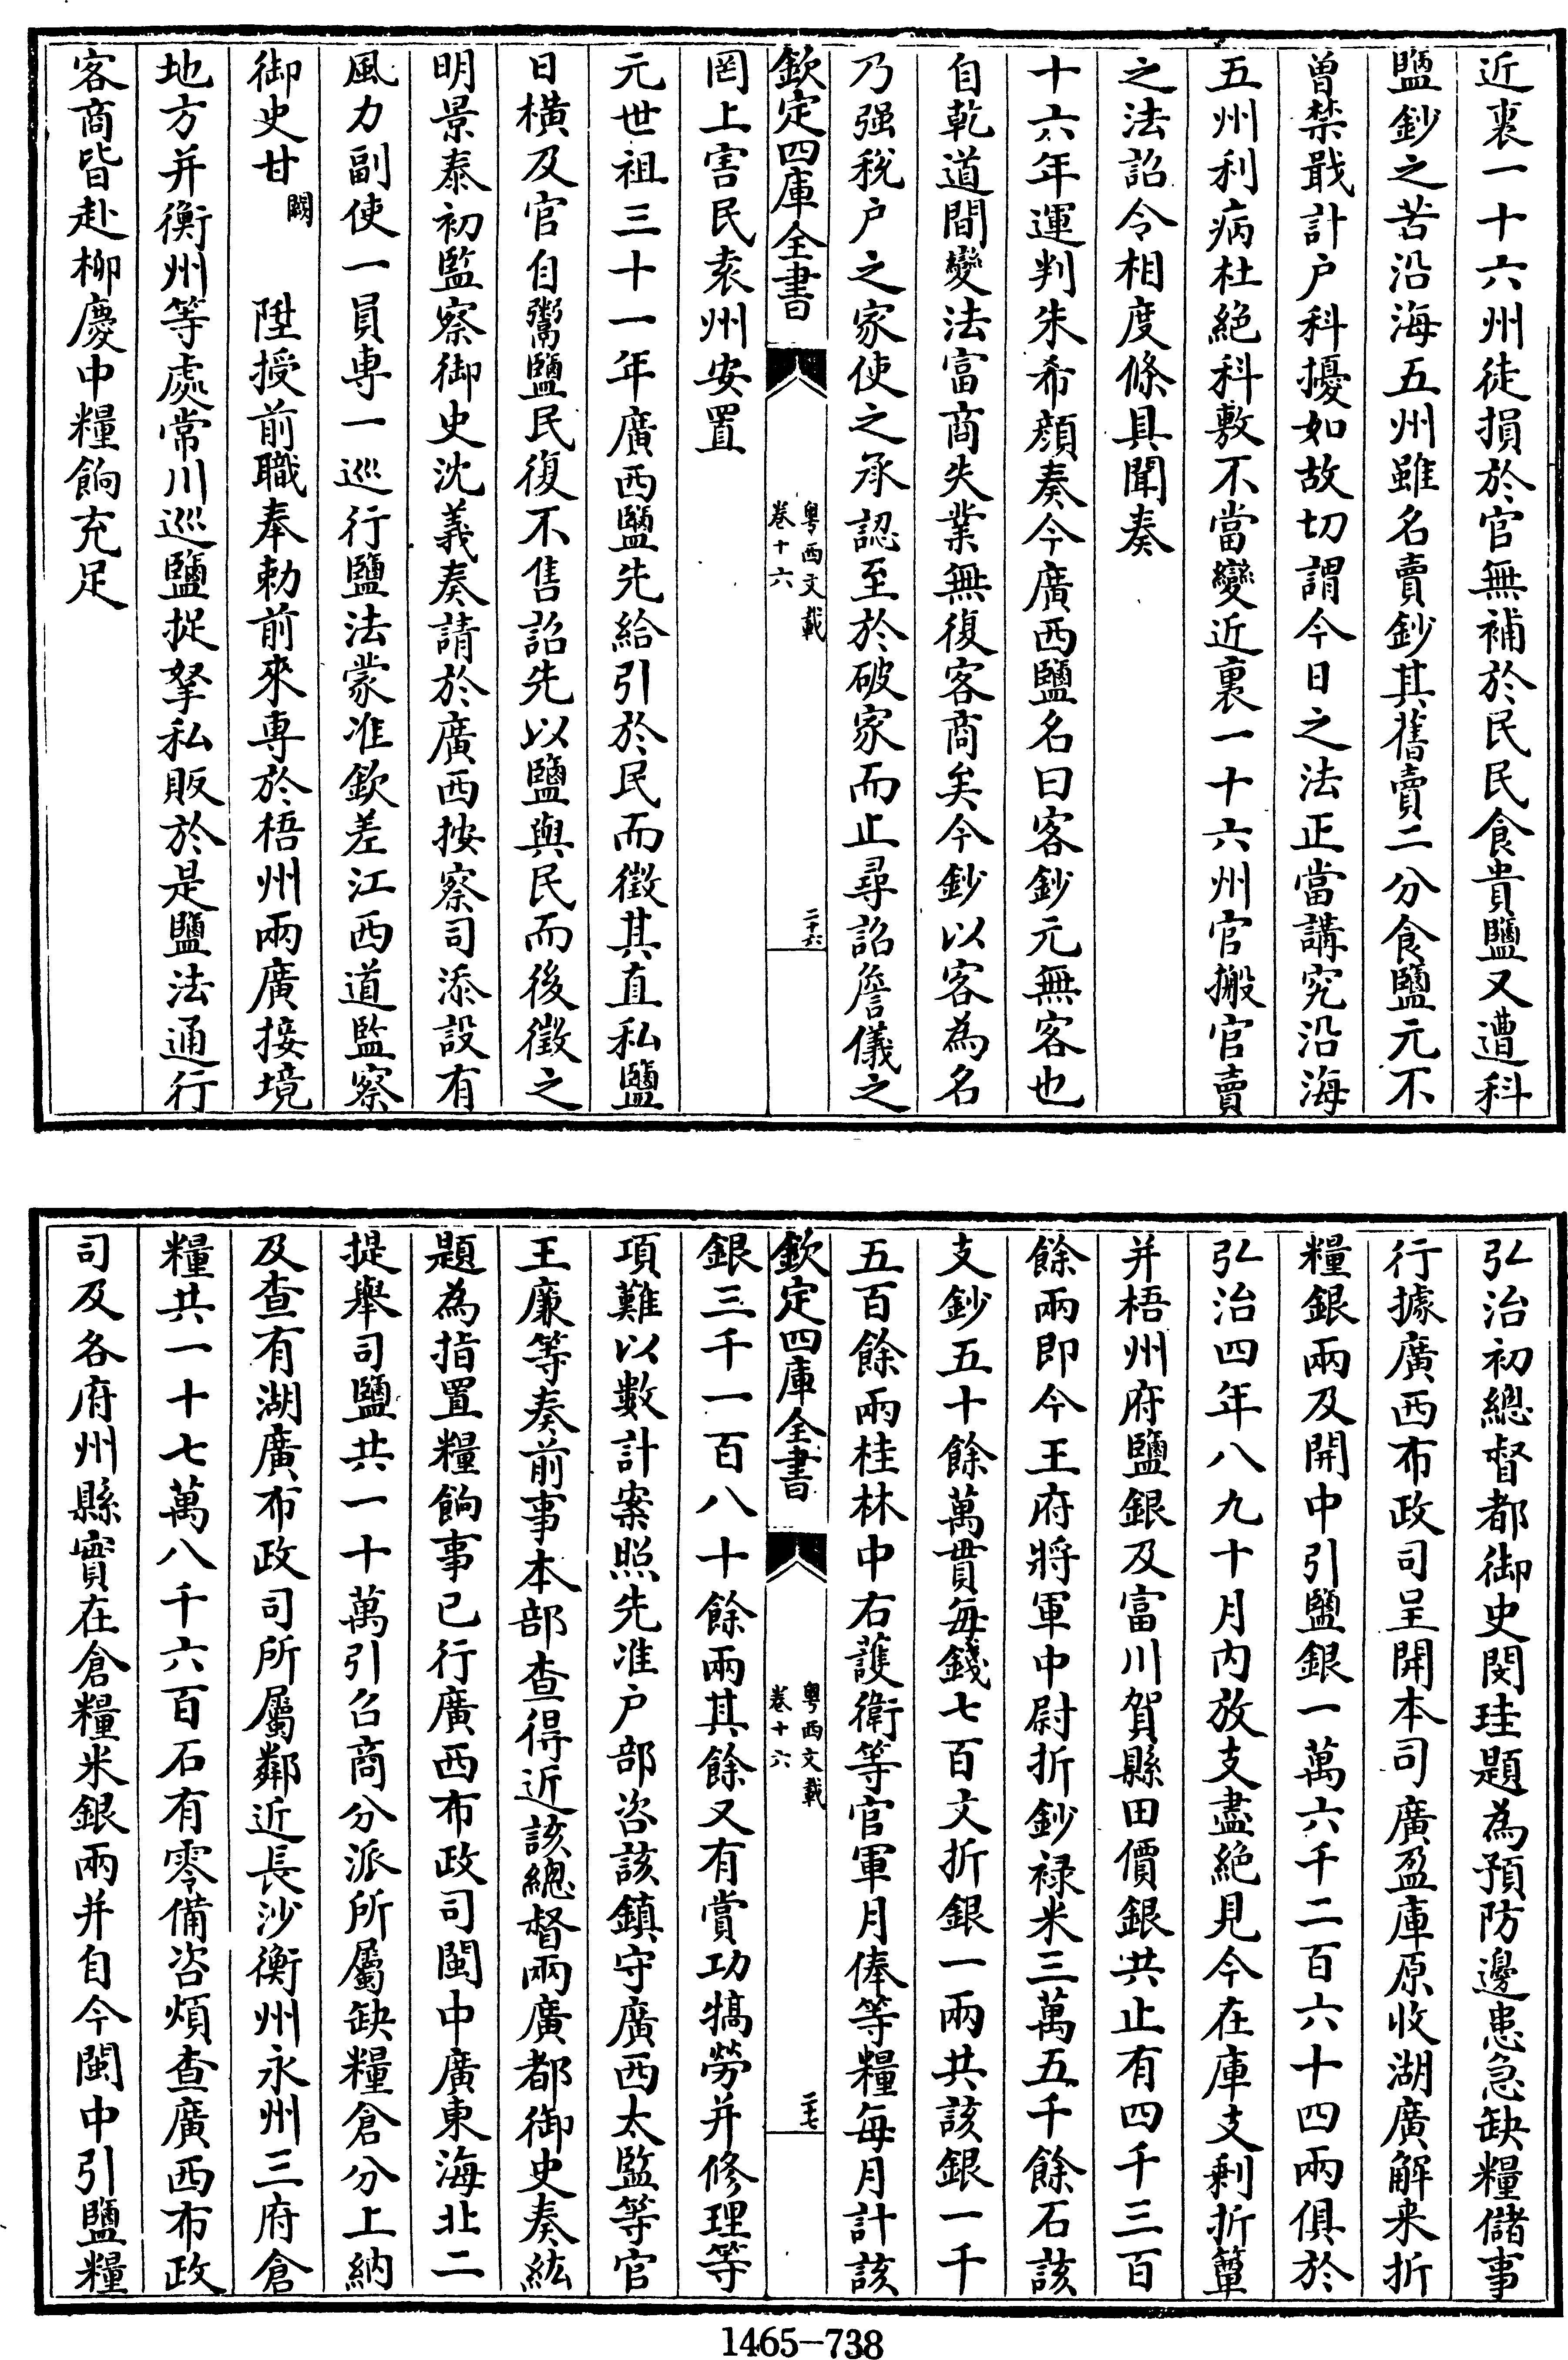 近裏一十六州徒損於官無補於民民食貴鹽又遭科
鹽鈔之苦沿海五州雖名賣鈔其舊賣二分食鹽元不
曾禁戢計户科擾如故切謂今日之法正當講究沿海
五州利病杜絶科敷不當變近裏一十六州官搬官賣
之法詔令相度條具聞奏
十六年運判朱希顔奏今廣西鹽名曰客鈔元無客也
自乾道間變法富商失業無復客商矣今鈔以客為名
乃强税户之家使之承認至於破家而止尋詔詹儀之
欽定四庫全書
粤西文載
卷十六
二十六
罔上害民袁州安置
元世祖三十一年廣西鹽先給引於民而徵其直私鹽
日横及官自鬻鹽民復不售詔先以鹽與民而後徵之
明景泰初監察御史沈義奏請於廣西按察司添設有
風力副使一員専一巡行鹽法蒙准欽差江西道監察
御史甘闕陞授前職奉勅前來専於梧州兩廣接境
地方并衡州等處常川巡鹽捉拏私販於是鹽法通行
客商皆赴柳慶中糧餉充足
弘治初總督都御史閔珪題為預防邊患急缺糧儲事
行據廣西布政司呈開本司廣盈庫原收湖廣解来折
糧銀兩及開中引鹽銀一萬六千二百六十四兩俱於
弘治四年八九十月内放支盡絶見今在庫支剰折簞
并梧州府鹽銀及富川賀縣田價銀共止有四千三百
餘兩即今王府將軍中尉折鈔禄米三萬五千餘石該
支鈔五十餘萬貫每錢七百文折銀一兩共該銀一千
五百餘兩桂林中右護衛等官軍月俸等糧每月計該
欽定四庫全書
粤西文載
卷十六
二十七
銀三千一百八十餘兩其餘又有賞功犒勞并修理等
項難以數計案照先准户部咨該鎮守廣西太監等官
王廉等奏前事本部查得近該總督兩廣都御史奏紘
題為指置糧餉事已行廣西布政司開中廣東海北二
提舉司鹽共一十萬引召商分派所屬缺糧倉分上納
及查有湖廣布政司所屬鄰近長沙衡州永州三府倉
糧共一十七萬八千六百石有零備咨煩查廣西布政
司及各府州縣實在倉糧米銀兩并自今開中引鹽糧
1465-738